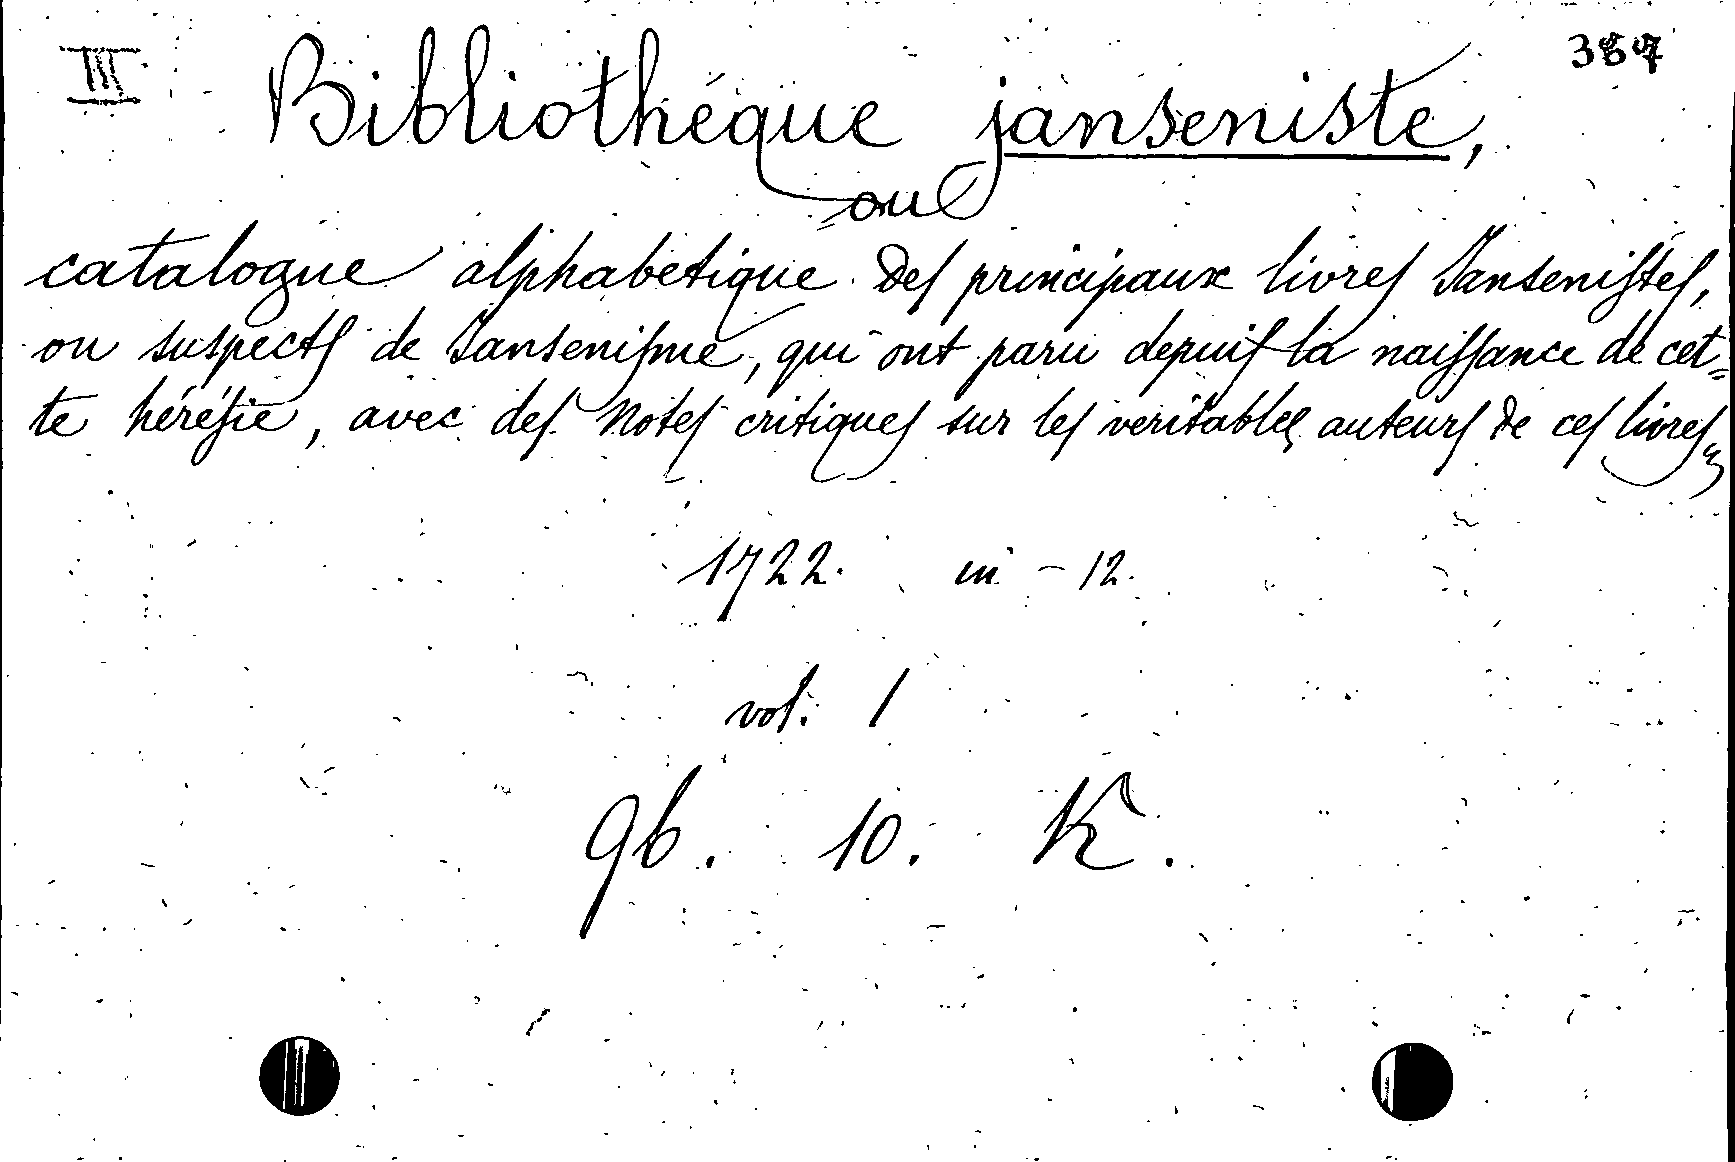 III
387
Bibliothéque janseniste,
ou
catalogue alphabetique des principaux livres Jansenistes,
ou suspects de Jansenisme, qui ont paru depuis la naissance de cet=
te hérésie, avec des Notes critiques sur les veritables auteurs de ces livres
1722. in - 12.
vol. 1
96. 10. K.